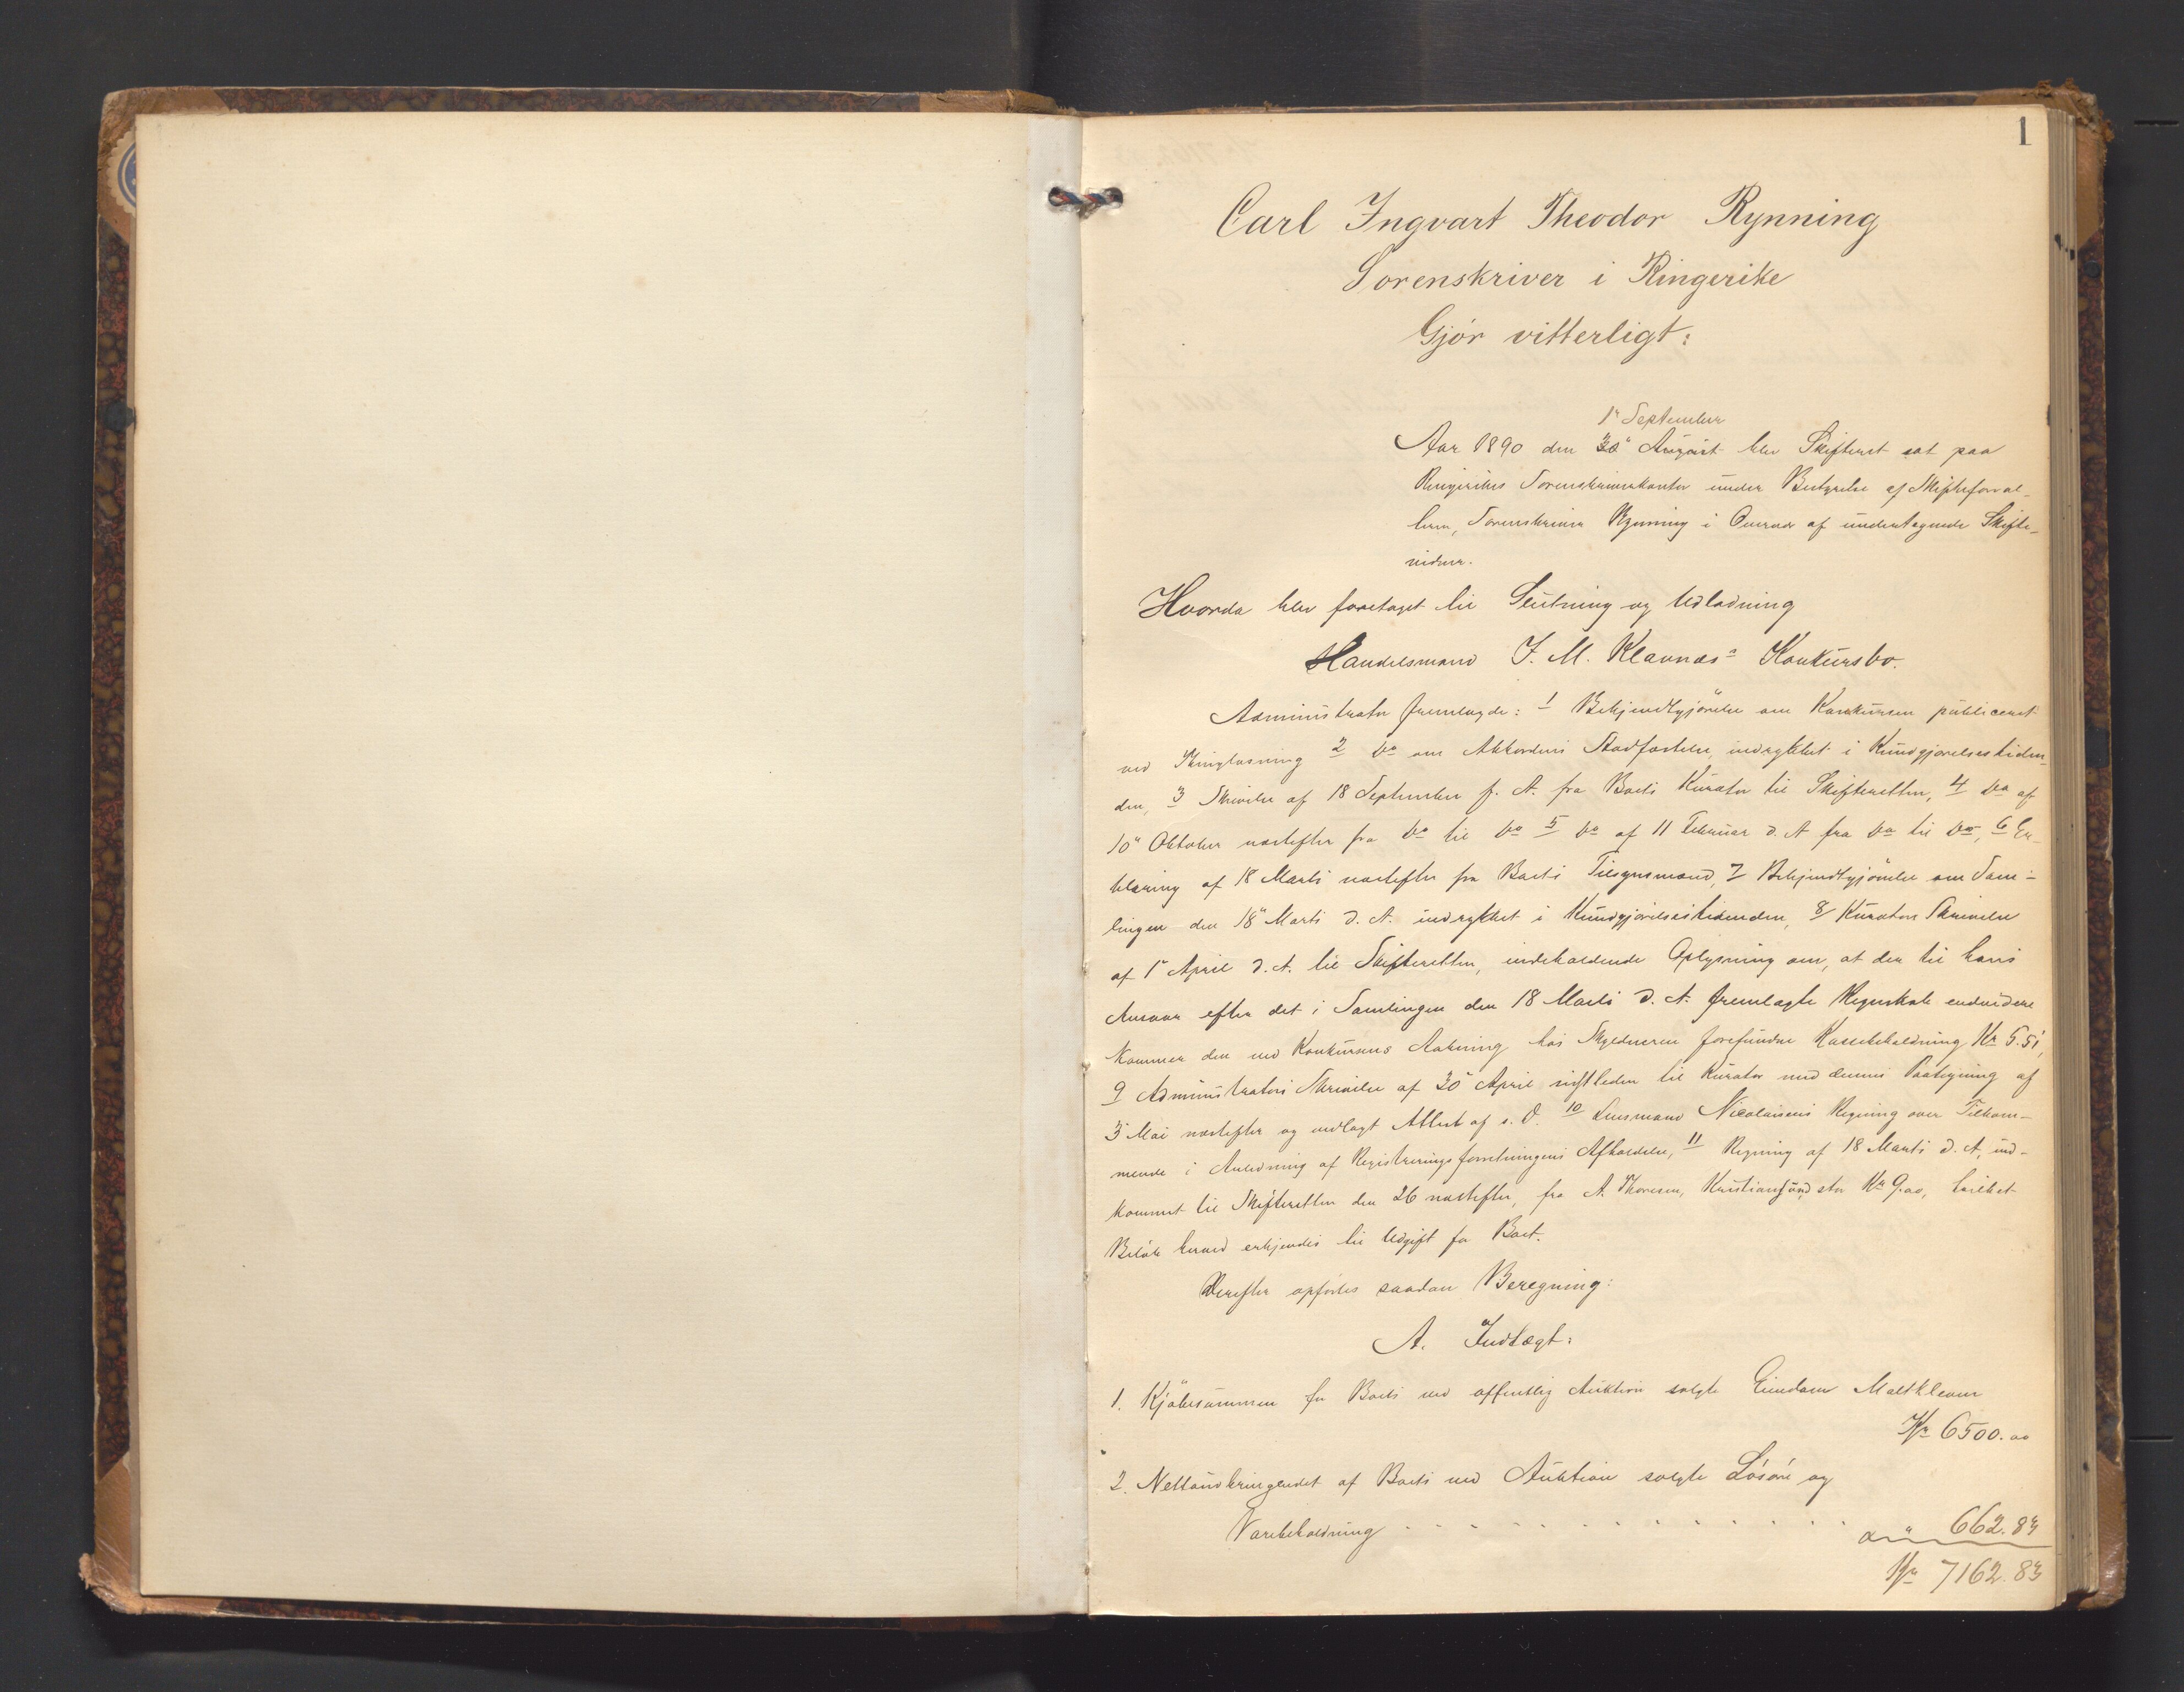 1
Carl Ingvart Theodor Rynning
Sorenskriver i Ringerike
Gjör vitterligt:
1ste September
Aar 1890 den 30te August blev Skifteret sat paa
Ringerikes Sorenskriverkontor under Bestyrelse af Skifteforval-
teren, Sorenskriver Rynning i Overvær af undertegnede Skifte-
vidner.
Hvorda blev foretaget til Slutning og Udlodning
Handelsmand J. M. Klævnæs's Konkursbo.
Administrator fremlagde: 1 Bekjendtgjörelse om Konkursen publiceret
ved Thinglæsning 2 do om Akkordens Stadfæstelse indrykket i Kundgjörelsestiden-
den, 3 Skrivelse af 18 September f. A. fra Boets Kurator til Skifteretten, 4 do af
10de Oktober næstefter fra do til do 5 do af 11 Februar d. A. fra do til do, 6 Er-
klæring af 18 Marts næstefter fra Boets Tilsynsmand, 7 Bekjendtgjörelse om Sam-
lingen den 18de Marts d. A. indrykket i Kundgjörelsestidenden, 8 Kurators Skrivelse
af 1ste April d. A. til Skifteretten, indeholdende Oplysning om, at der til hans
Ansvar efter det i Samlingen den 18 Marts d. A. fremlagte Regnskab endvidere
kommer den ved Konkursens Aabning hos Skyldneren forefundne Kassebeholdning Kr 5.51,
9 Administrators Skrivelse af 30te April sidstleden til Kurator med dennes Paategning af
3die Mai næstefter og vedlagt Attest af s. D. 10 Lensmand Nicolaisens Regning over Tilkom-
mende i Anledning af Registreringsforretningens Afholdelse, 11 Regning af 18 Marts d. A, ind-
kommet til Skifteretten den 26 næstefter, fra A. Thoresen, Kristiansund, stor Kr 9.00, hvilket
Belöb herved erkjendes til Udgift for Boet.
Derefter opförtes saadan Beregning:
A. Indtægt:
1. Kjöbesummen for Boets ved offentlig Auktion solgte Eiendom
Kr 6500.00
2. Nettoudbringendet af Boets ved Auktion solgte Lösöre og
Varebeholdning . . . . . . . . . . . . . 662.83
Kr 7162.83